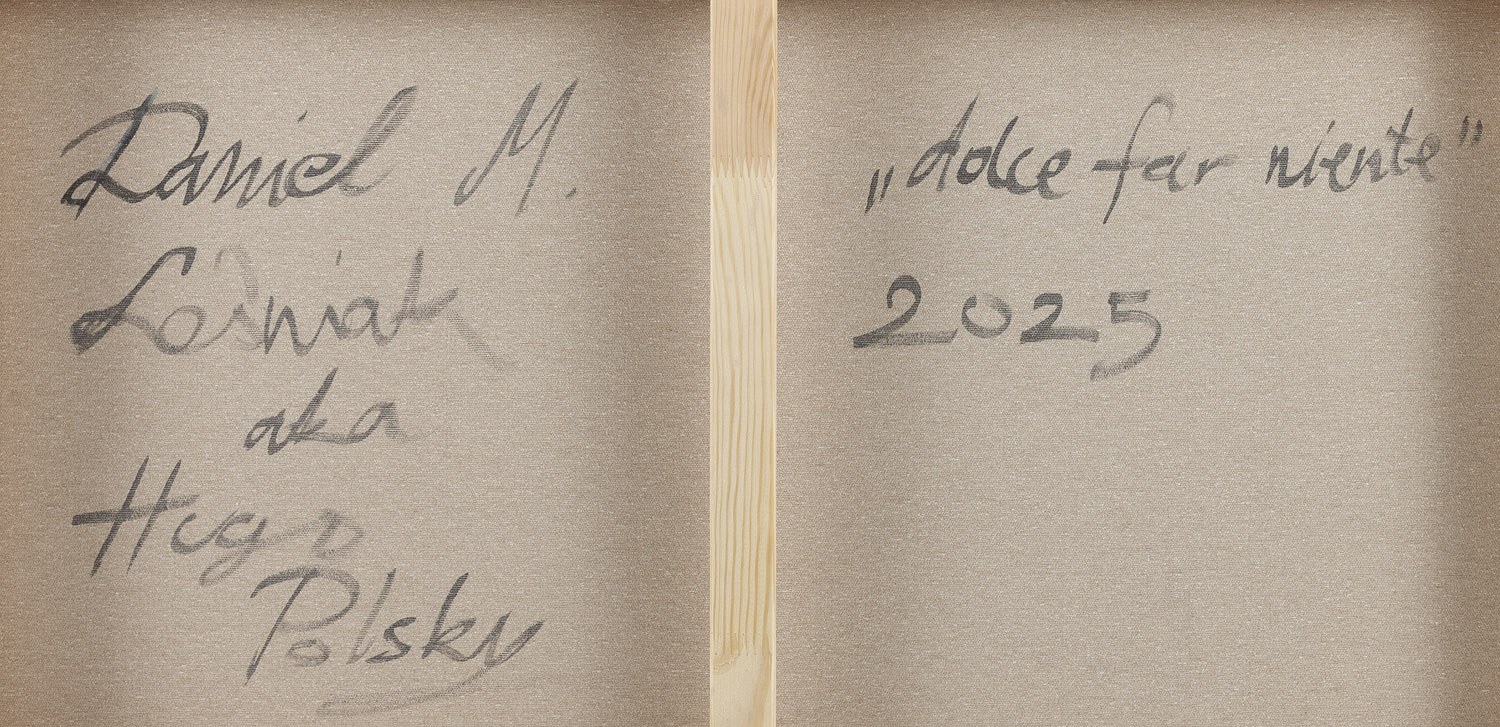 Daniel M.
Leśniak
aka
Hugo
Polsky
„dolce far niente”
2025